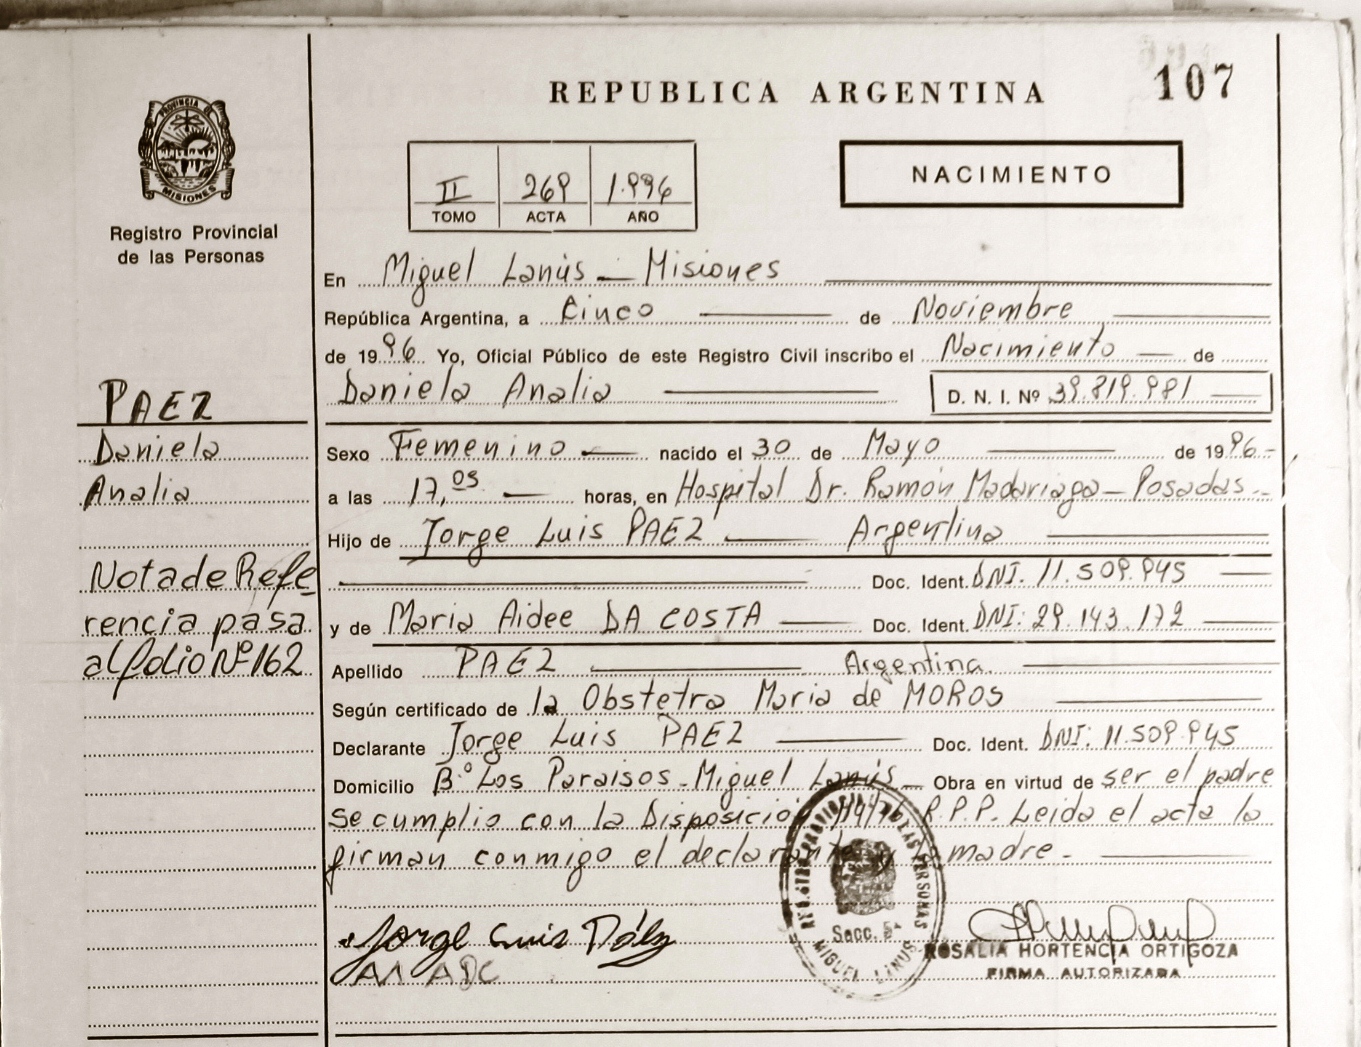 REPUBLICA ARGENTINA
107
PROVINCIA DE
MISIONES
Registro Provincial
de las Personas
II 269 1.996
TOMO ACTA AÑO
NACIMIENTO
En Miguel Lanús - Misiones
República Argentina, a Cinco de Noviembre
de 1996 Yo, Oficial Público de este Registro Civil inscribo el Nacimiento de
Daniela Analia D. N. I. Nº 39.819.981
PAEZ
Daniela
Analia
Nota de Refe
rencia pasa
al folio Nº 162
Sexo Femenino nacido el 30 de Mayo de 1996.-
a las 17,05 horas, en Hospital Dr. Ramón Madariaga - Posadas.-
Hijo de Jorge Luis PAEZ Argentino
Doc. Ident. DNI. 11.509.945
y de Maria Aidee DA COSTA Doc. Ident. DNI: 29.143.172
Apellido PAEZ Argentina
Según certificado de la Obstetra Maria de MOROS
Declarante Jorge Luis PAEZ Doc. Ident. DNI: 11.509.945
Domicilio Bº Los Paraisos - Miguel Lanús Obra en virtud de ser el padre
Se cumplio con la Disposicio R.P.P. Leida el acta la
firman conmigo el declarante madre.-
Jorge Luis Páez
REGISTRO PROVINCIAL DE LAS PERSONAS
Secc. 5ª
MIGUEL LANUS
ROSALIA HORTENCIA ORTIGOZA
FIRMA AUTORIZADA